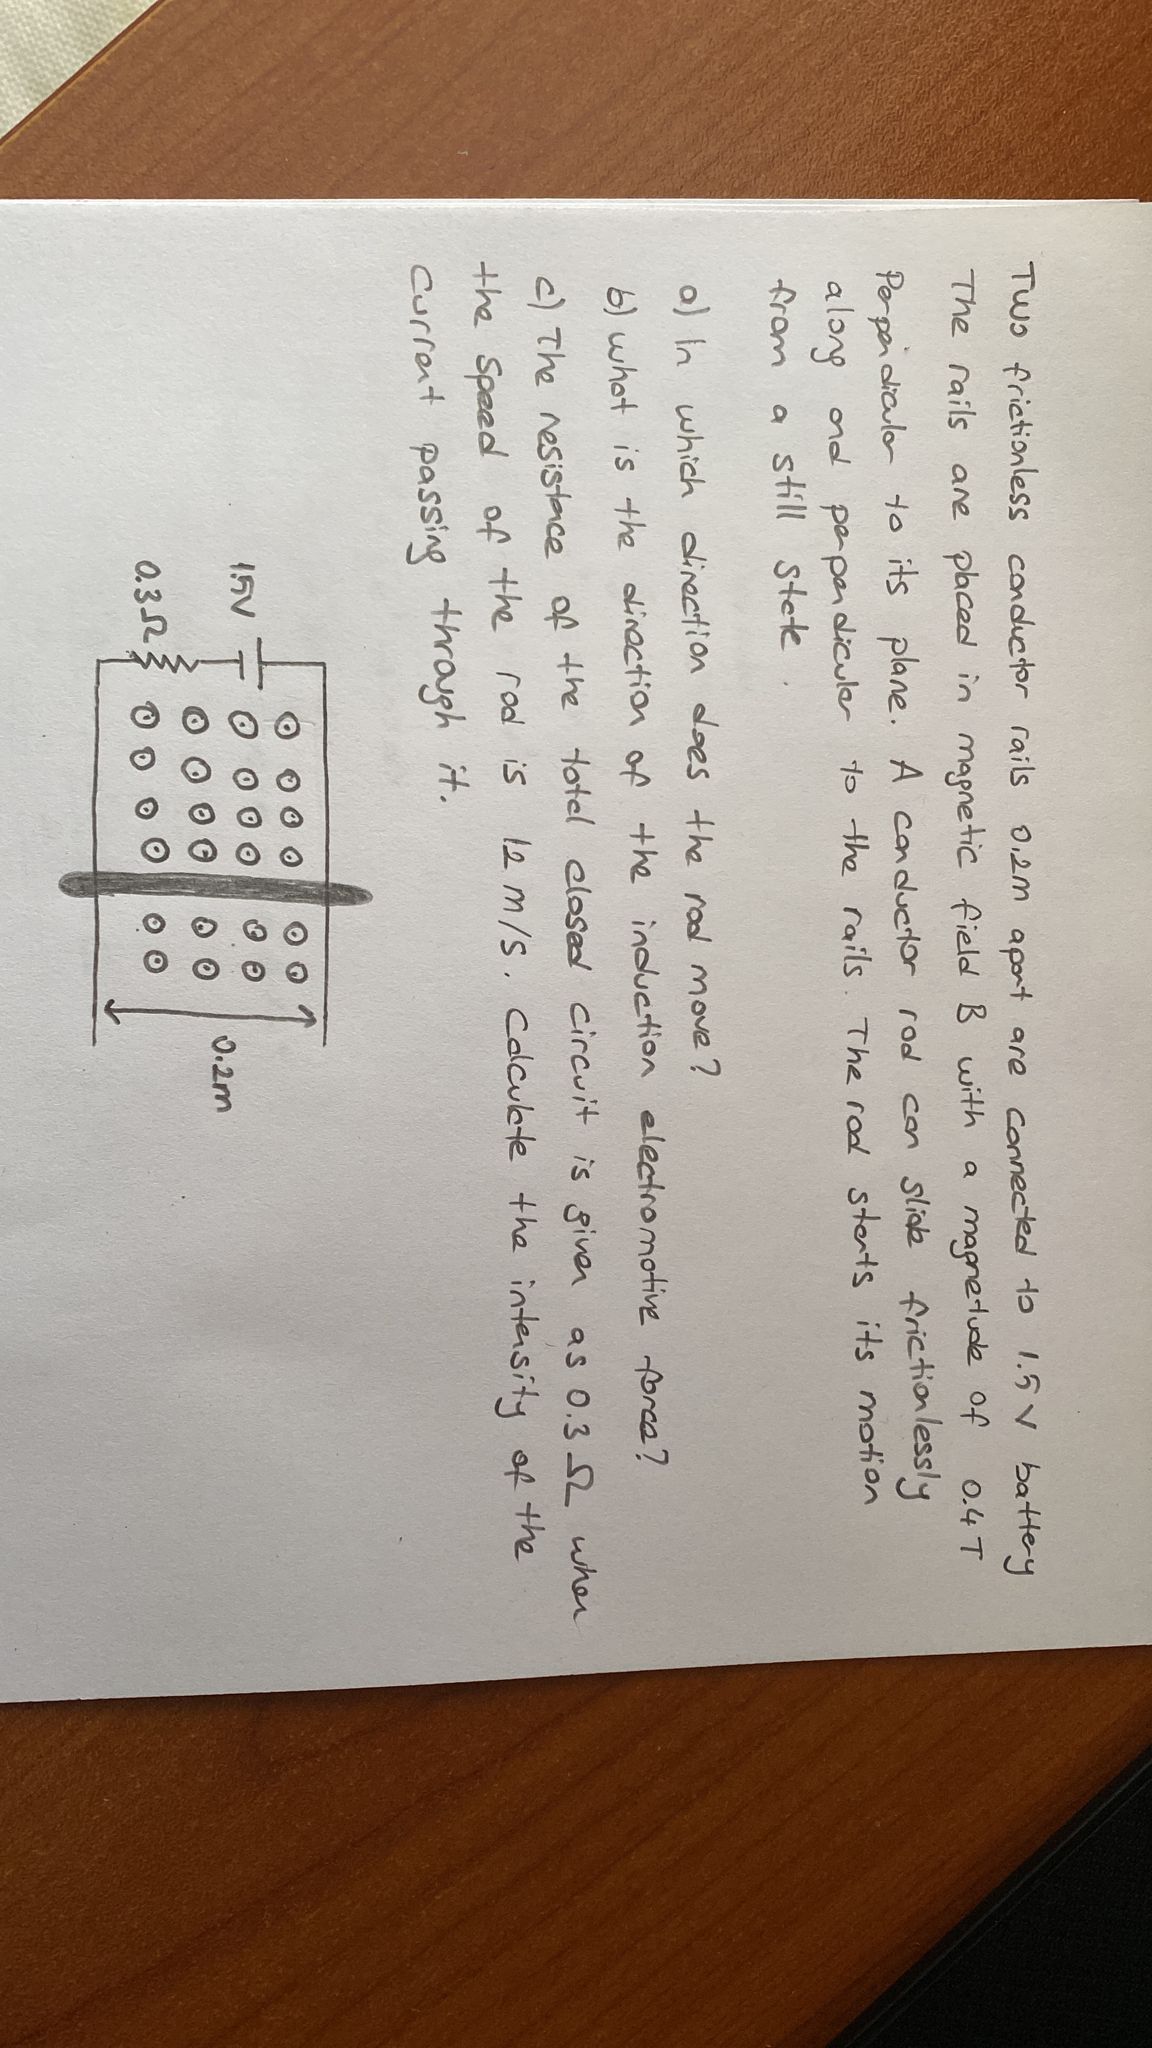 Two frictionless conductor rails 0.2m apart are connected to 1.5V battery
The rails are placed in magnetic field B with a magnetude of 0.4T
Perpendicular to its plane. A conductor rod can slide frictionlessly
along and perpendicular to the rails. The rod starts its motion
from a still state.
a) In which direction does the rod move?
b) what is the direction of the induction electromotive force?
c) The resistance of the total closed circuit is given as 0.3 Ω when
the speed of the rod is 12 m/s. Calculate the intensity of the
current passing through it.
1.5V
0.3Ω
0.2m